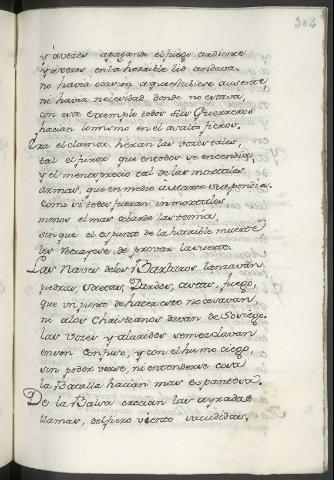 304
y à vezes apagando el fuego ardiente
y à vezes en la horrible lid andava.
no havia ocasion a que estubiese ausente
ni havia necesidad donde no estava,
con este exemplo todos sus Guerreros
hacian lo mismo en el asalto fieros.
Era el clamor, heran las vozes tales,
tal el furor que en todos se encendia,
y el menosprecio tal de las mortales
armas, que en medio a Marte suspendia.
Como si todos fueran inmortales
menos el mas cobarde las temia,
sin que el espanto de la horrible muerte
les retrayese de provar la suerte.
Las Naves de los Barbaros lanzavan
piedras, saetas, Dardos, astas, fuego,
que un punto de hacer esto no cesavan,
ni a los Christianos davan de Sosiego.
las vozes y alaridos se mezclavan
en son confuso, y con el humo ciego
sin poder verse, ni entenderse cosa
la Batalla hacian mas espantosa.
De la Balsa crecian las ayradas
llamas, del fiero viento sacudidas,